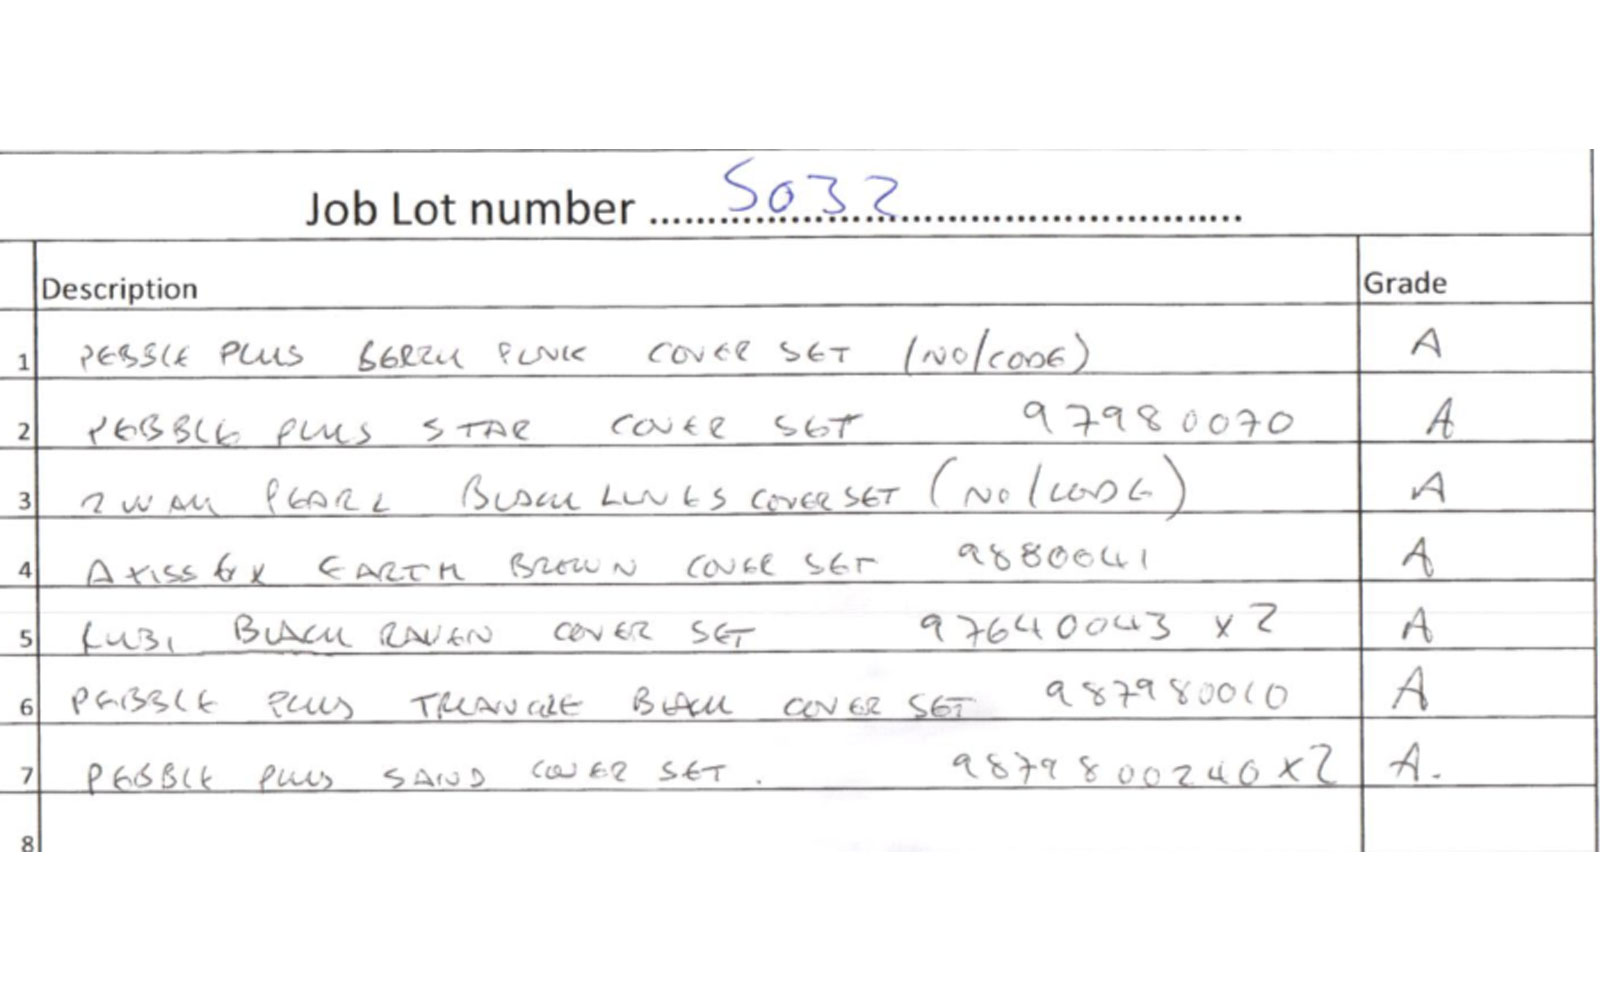 Job Lot number ....5032....
Description Grade
1 PEBBLE PLUS BERRY PINK COVER SET (NO/CODE) A
2 PEBBLE PLUS STAR COVER SET 97980070 A
3 2 WAY PEARL BLACK LINES COVER SET (NO/CODE) A
4 AXISS FIX EARTH BROWN COVER SET 9880041 A
5 RUBI BLACK RAVEN COVER SET 97640043 x2 A
6 PEBBLE PLUS TRIANGLE BLACK COVER SET 987980010 A
7 PEBBLE PLUS SAND COVER SET. 9879800240 x2 A.
8